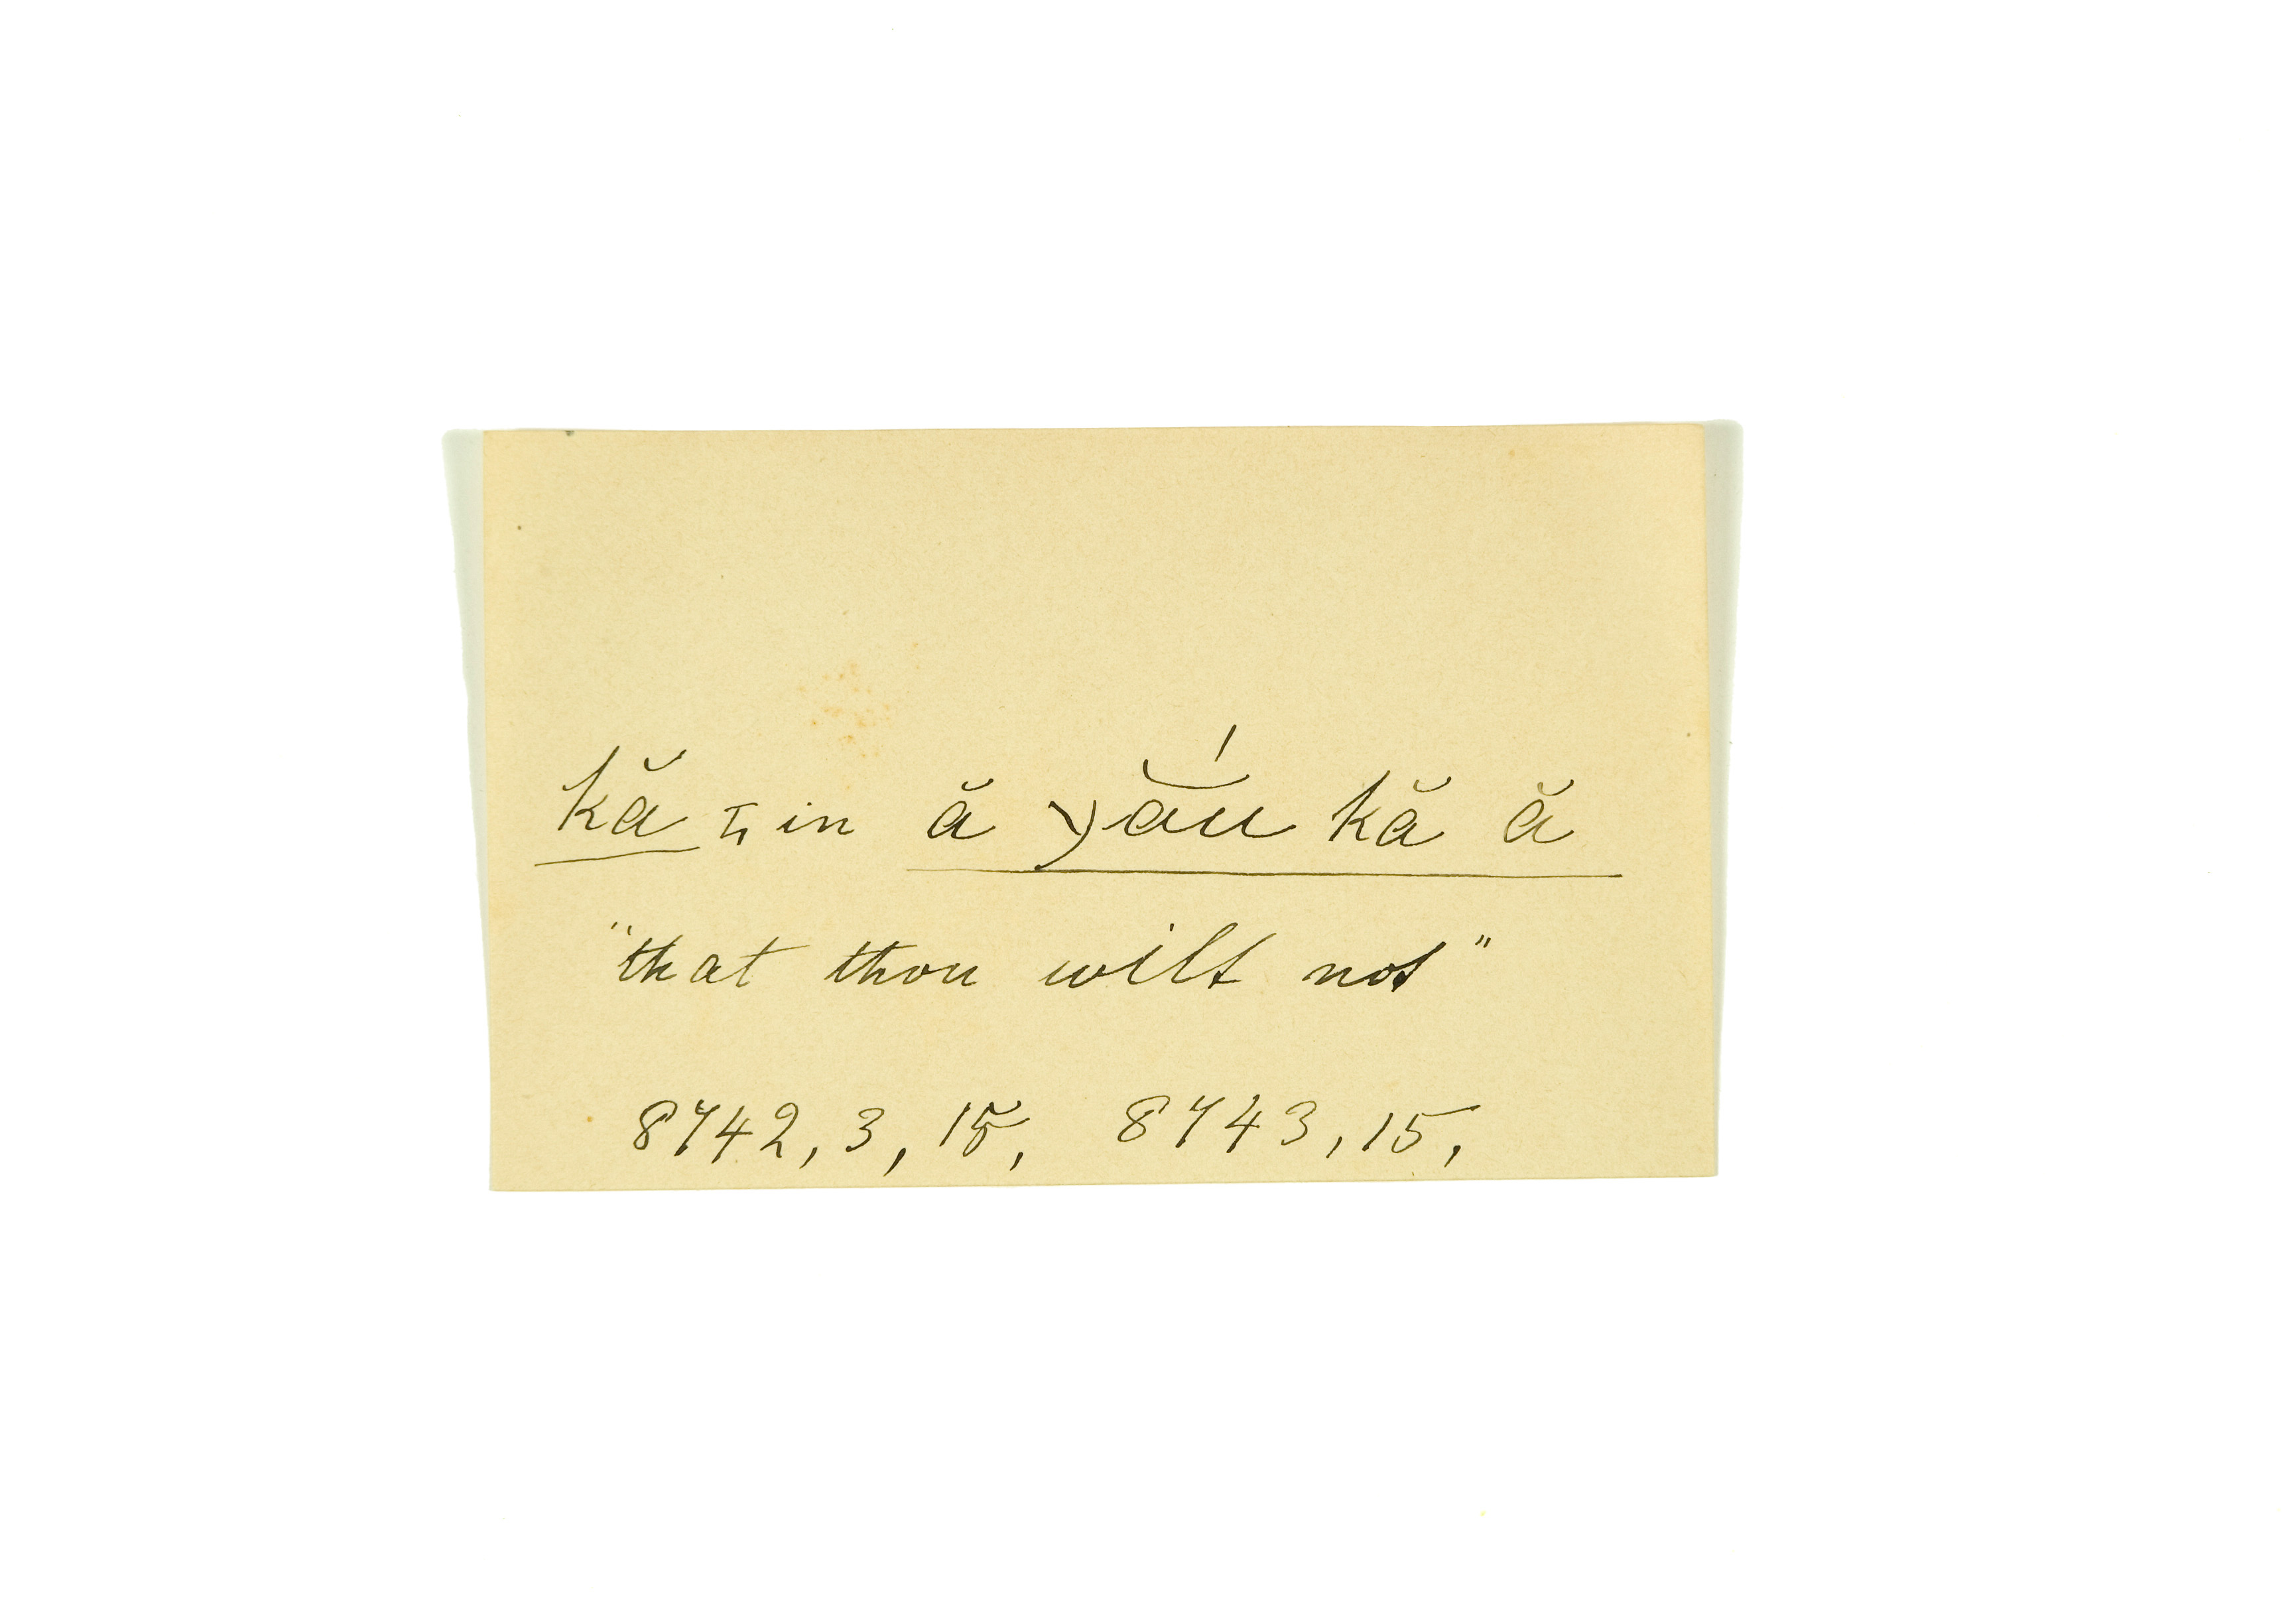 kă II in ă yắu kă ă
"that thou wilt not"
8742, 3, 15, 8743, 15,